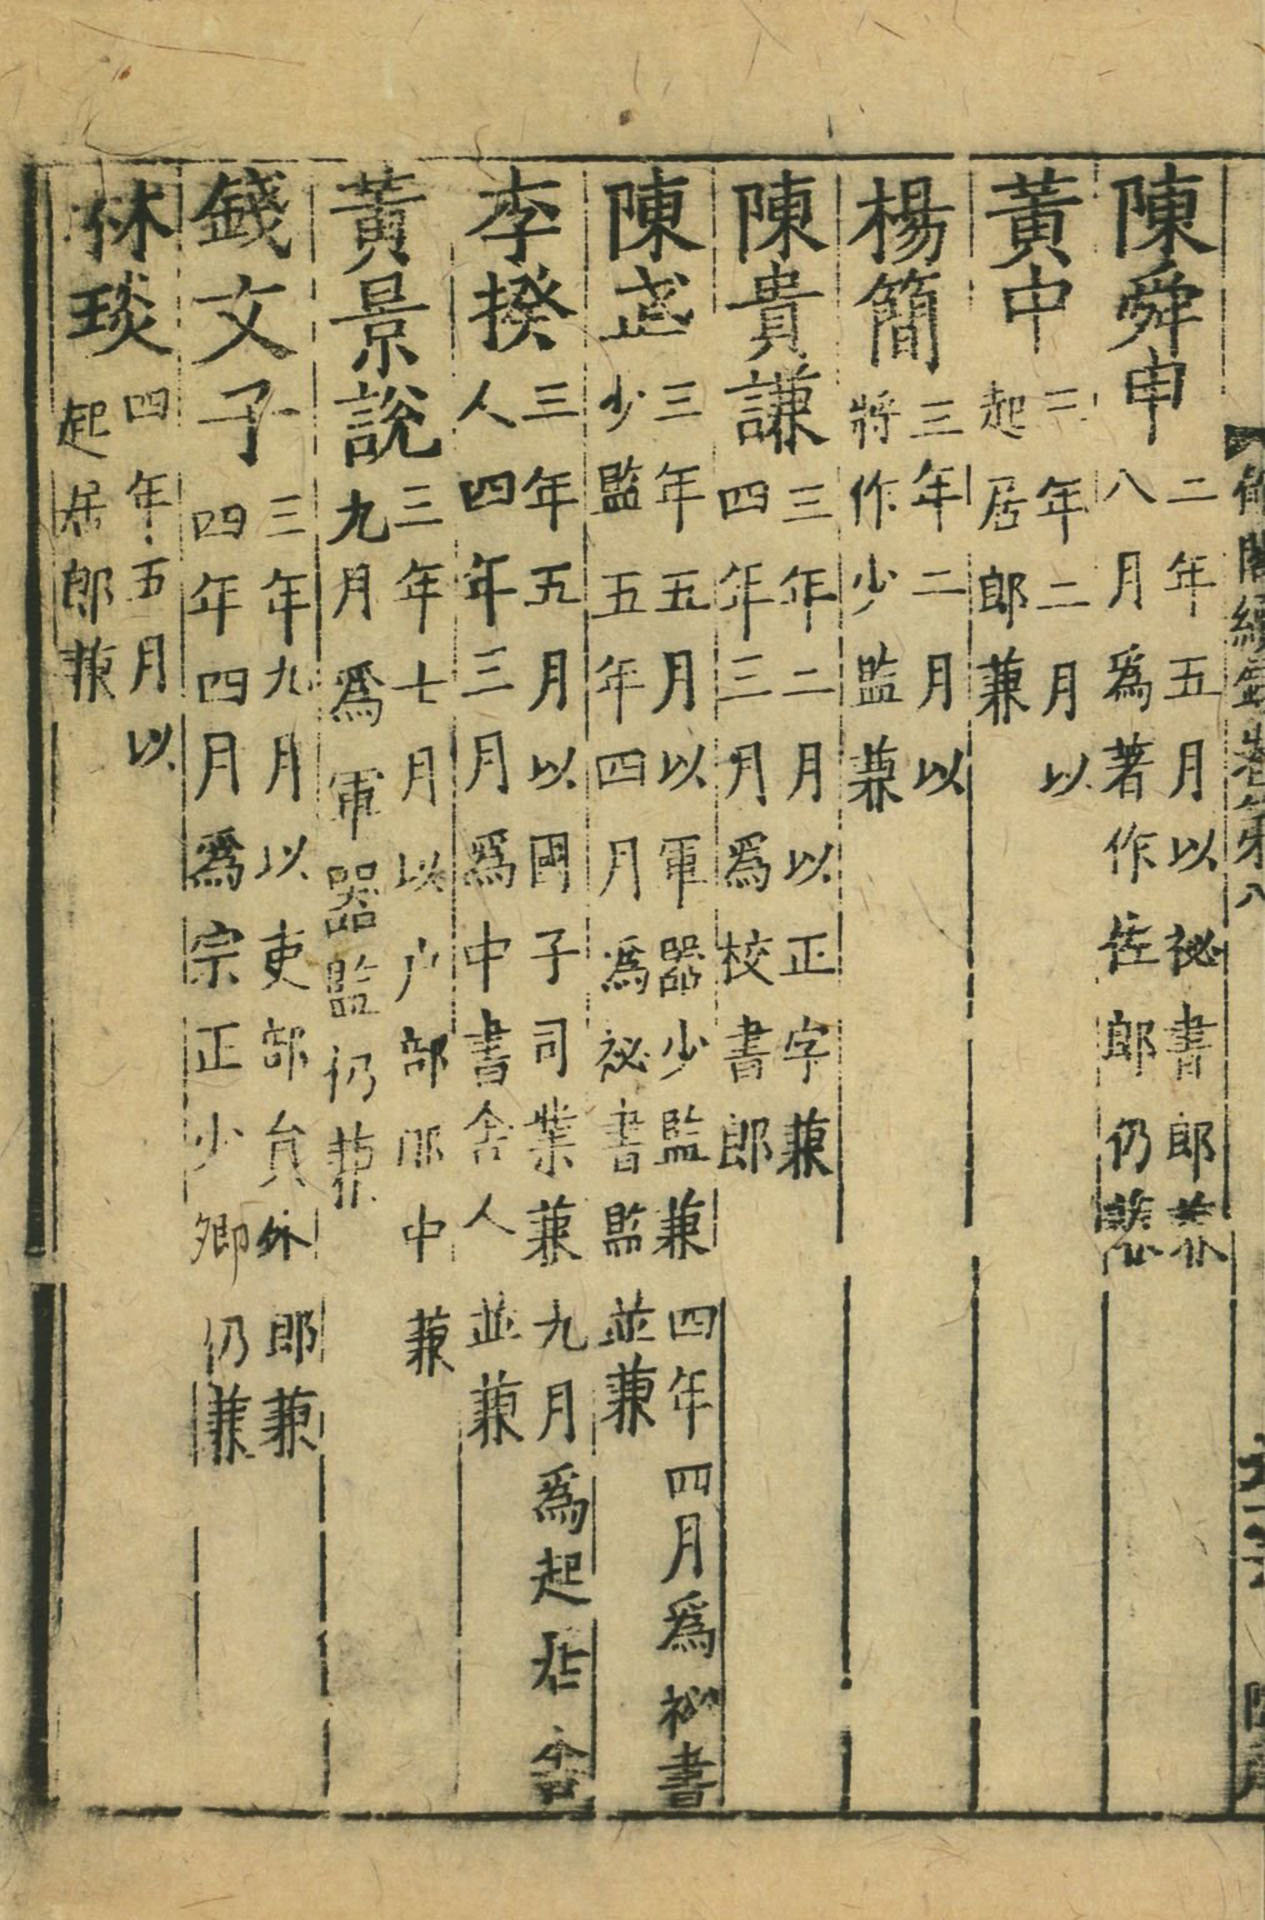 館閣續錄卷第八
陳舜申 二年五月以祕書郎兼
八月爲著作佐郎仍兼
黃中 三年二月以
起居郎兼
楊簡 三年二月以
將作少監兼
陳貴謙 三年二月以正字兼
四年三月爲校書郎
陳武 三年五月以軍器少監兼四年四月爲祕書
少監五年四月爲祕書監並兼
李揆 三年五月以國子司業兼九月爲起居舍
人四年三月爲中書舍人並兼
黃景說 三年七月以户部郎中兼
九月爲軍器監仍兼
錢文子 三年九月以吏部員外郎兼
四年四月爲宗正少卿仍兼
林琰 四年五月以
起居郎兼